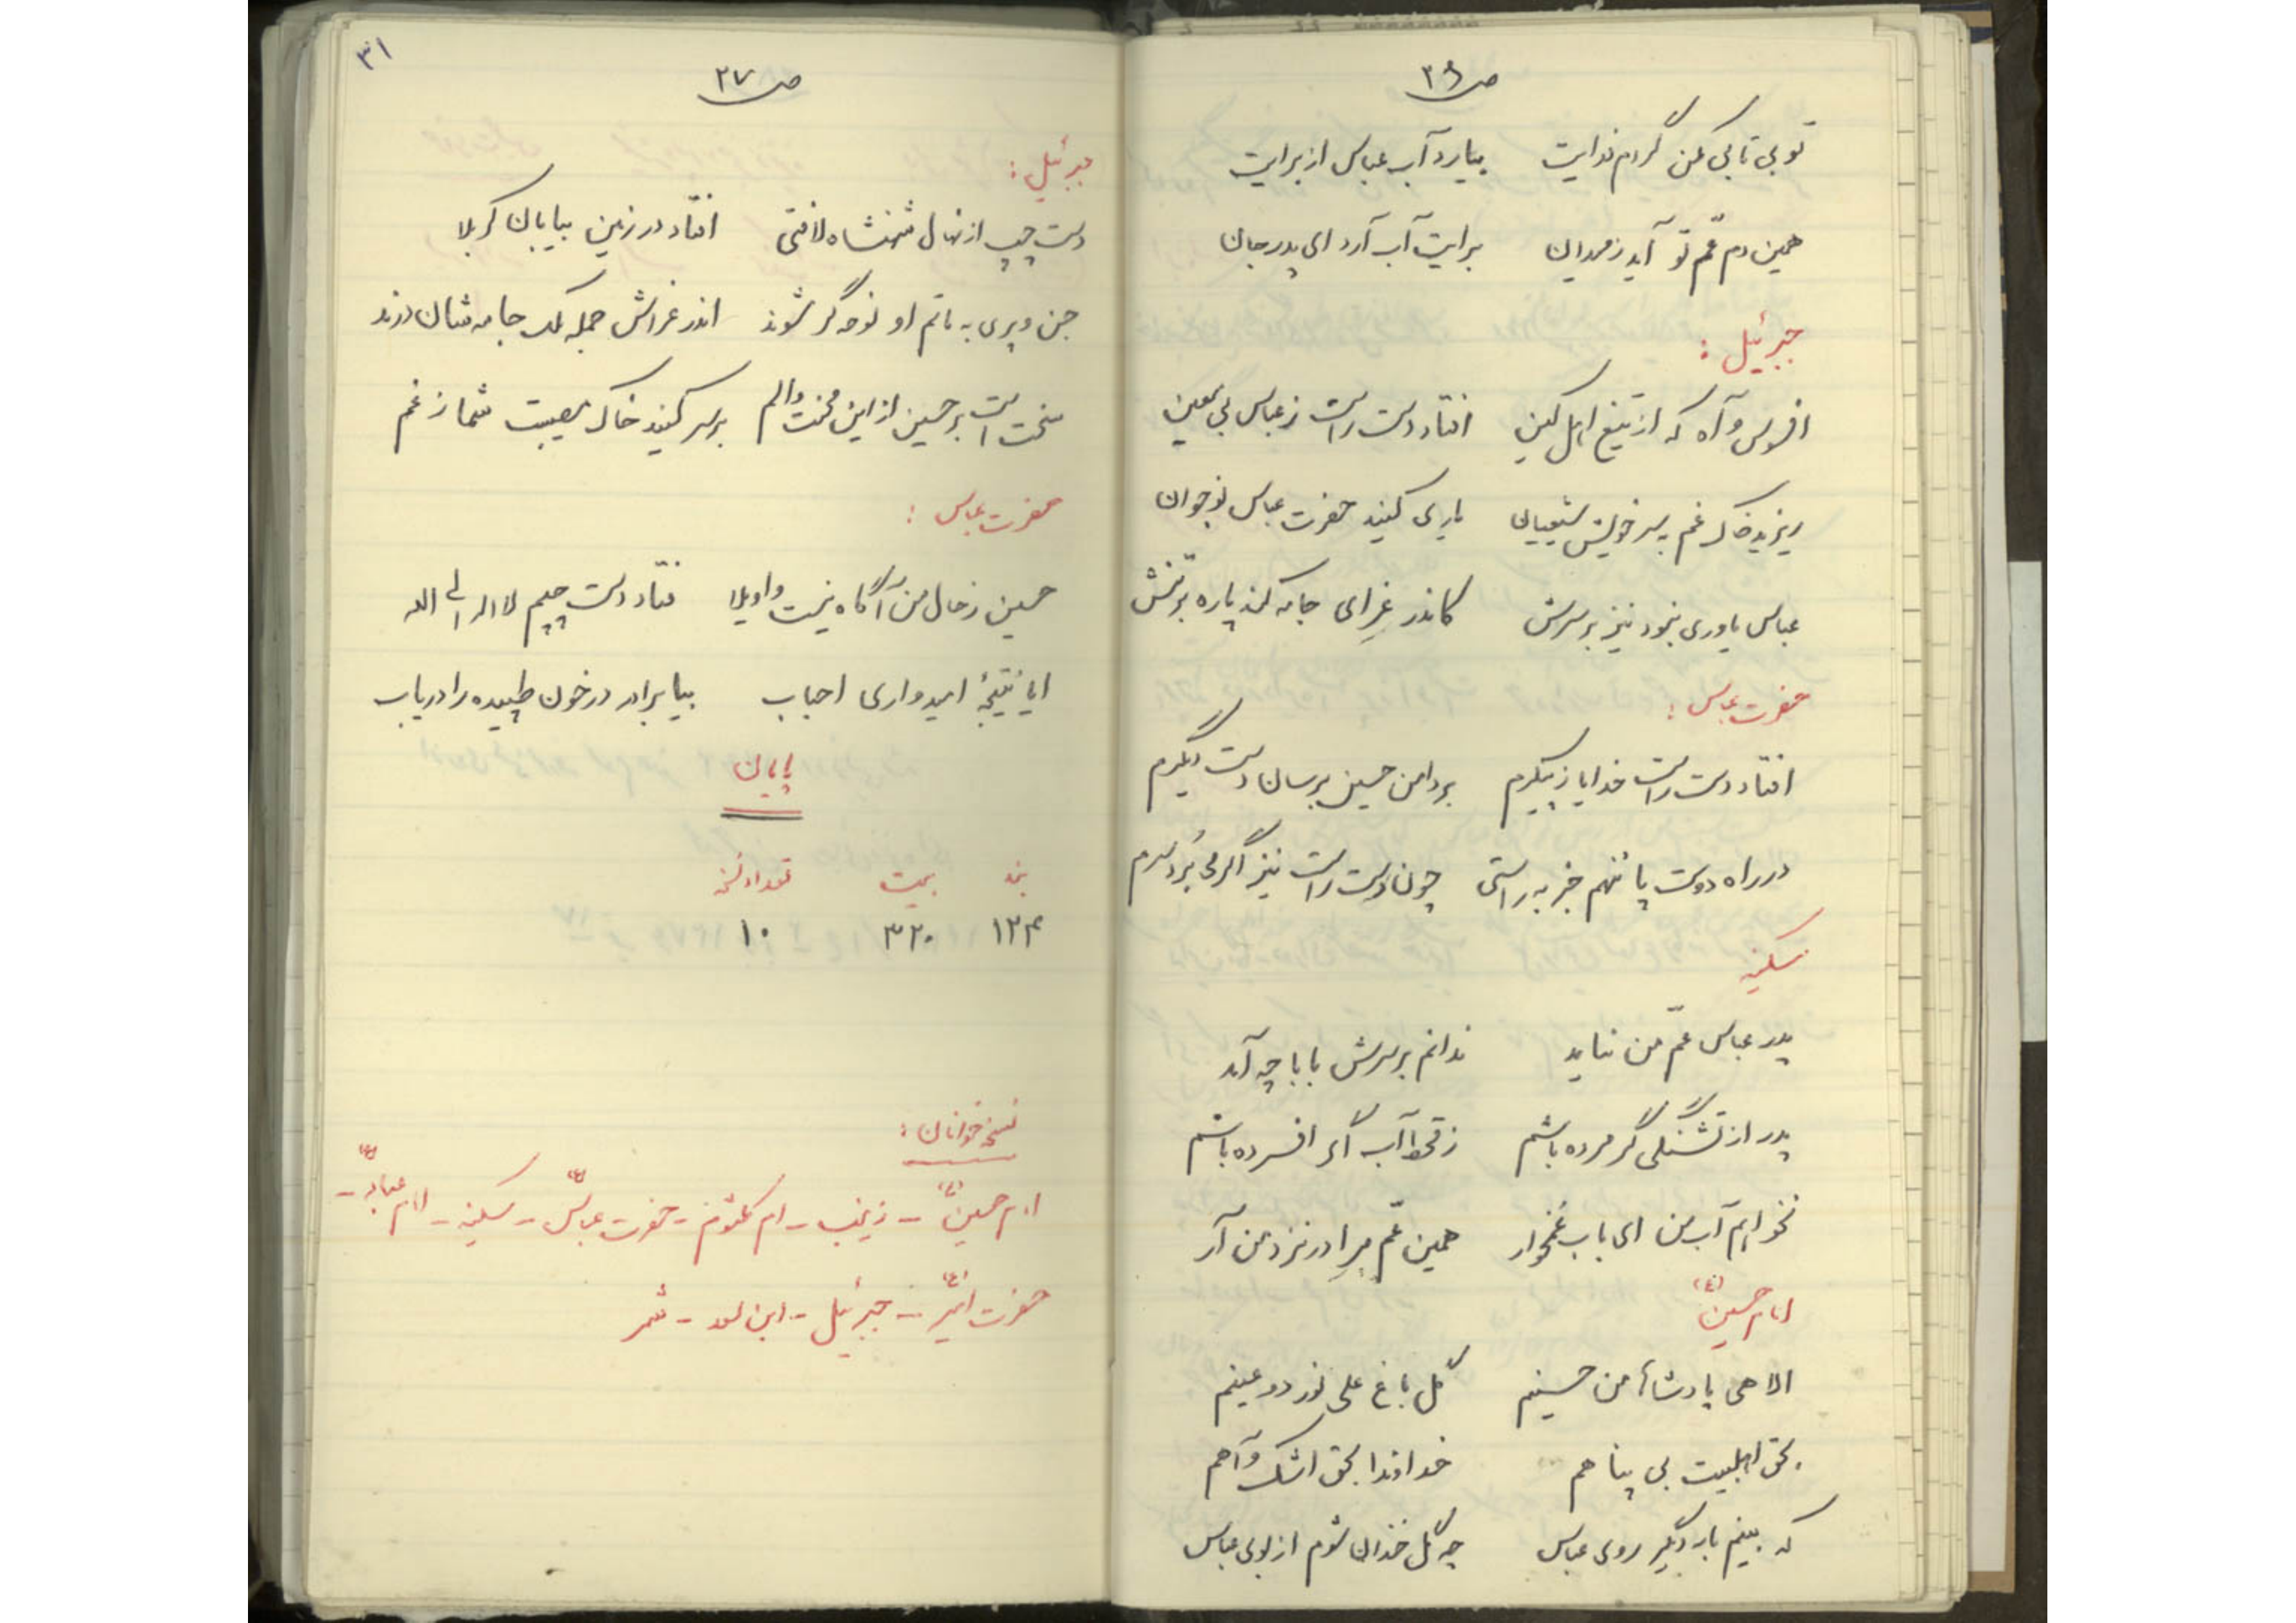 ص ۳۶
تو بی تابی مکن گردم فدایت بیارد آب عباس از برایت
همین دم عمّ تو آید ز میدان برایت آب آرد ای پدر جان
جبرئیل :
افسوس و آه که از تیغ اهل کین افتاد دست راست ز عباس بی معین
ریزید خاک غم بسر خویش شیعیان یاری کنید حضرت عباس نوجوان
عباس یاوری نبود نیز بر سرش کاندر عزای جامه کند پاره بر تنش
حضرت عباس :
افتاد دست راست خدایا ز پیکرم بر دامن حسین برسان دست دیگرم
در راه دوست پا ننهم جز به راستی چون دست راست نیز اگر می بُرد سرم
سکینه
پدر عباس عمّ من نیاید ندانم بر سرش بابا چه آمد
پدر از تشنگی گر مرده باشم ز قحط آب اگر افسرده باشم
نخواهم آب من ای باب غمخوار همین عمّ مرا در نزد من آر
امام حسین (ع)
الاهی پادشاها من حسینم گل باغ علی نور دو عینم
بحق اهلبیت بی پناهم خداوندا بحق اشک و آهم
که بینم بار دیگر روی عباس چه گل خندان شوم از بوی عباس
۳۱
ص ۳۷
جبرئیل :
دست چپ از نهال شهنشاه لافتی افتاد در زمین بیابان کربلا
جن و پری به ماتم او نوحه گر شوند اندر عزاش جمله ملک جامه شان درند
سخت است بر حسین از این محنت و الم بر سر کنید خاک مصیبت شما ز غم
حضرت عباس :
حسین ز حال من آگاه نیست واویلا فتاد دست چپم لا اله الی الله
ایا نتیجهٔ امیدواری احباب بیا برادر در خون طپیده را دریاب
پایان
بند بیت تعداد نسخه
۱۲۴ ۳۲۰ ۱۰
نسخه خوانان :
امام حسین (ع) – زینب – ام کلثوم – حضرت عباس (ع) – سکینه – امام عباد (ع) –
حضرت امیر (ع) – جبرئیل – ابن سعد – شمر